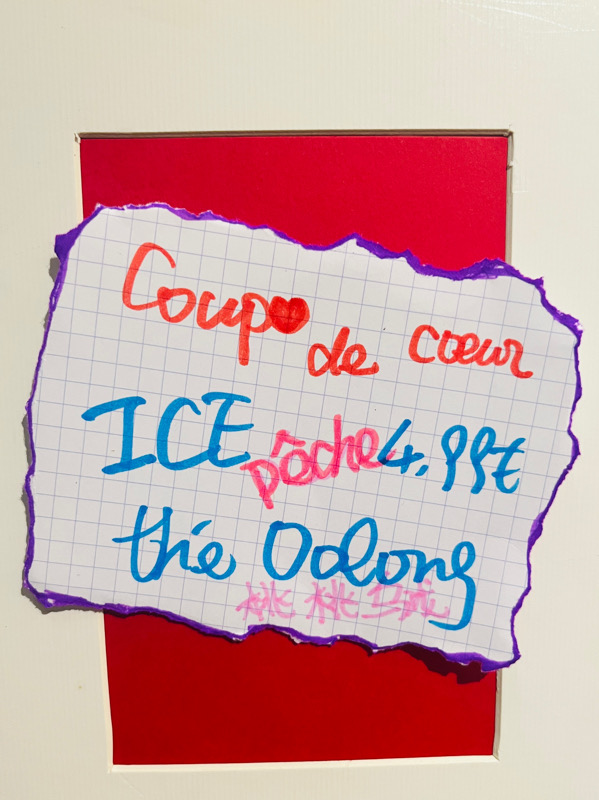 Coup ❤ de cœur
ICE pêche 4,99€
thé Oolong
桃桃乌龙